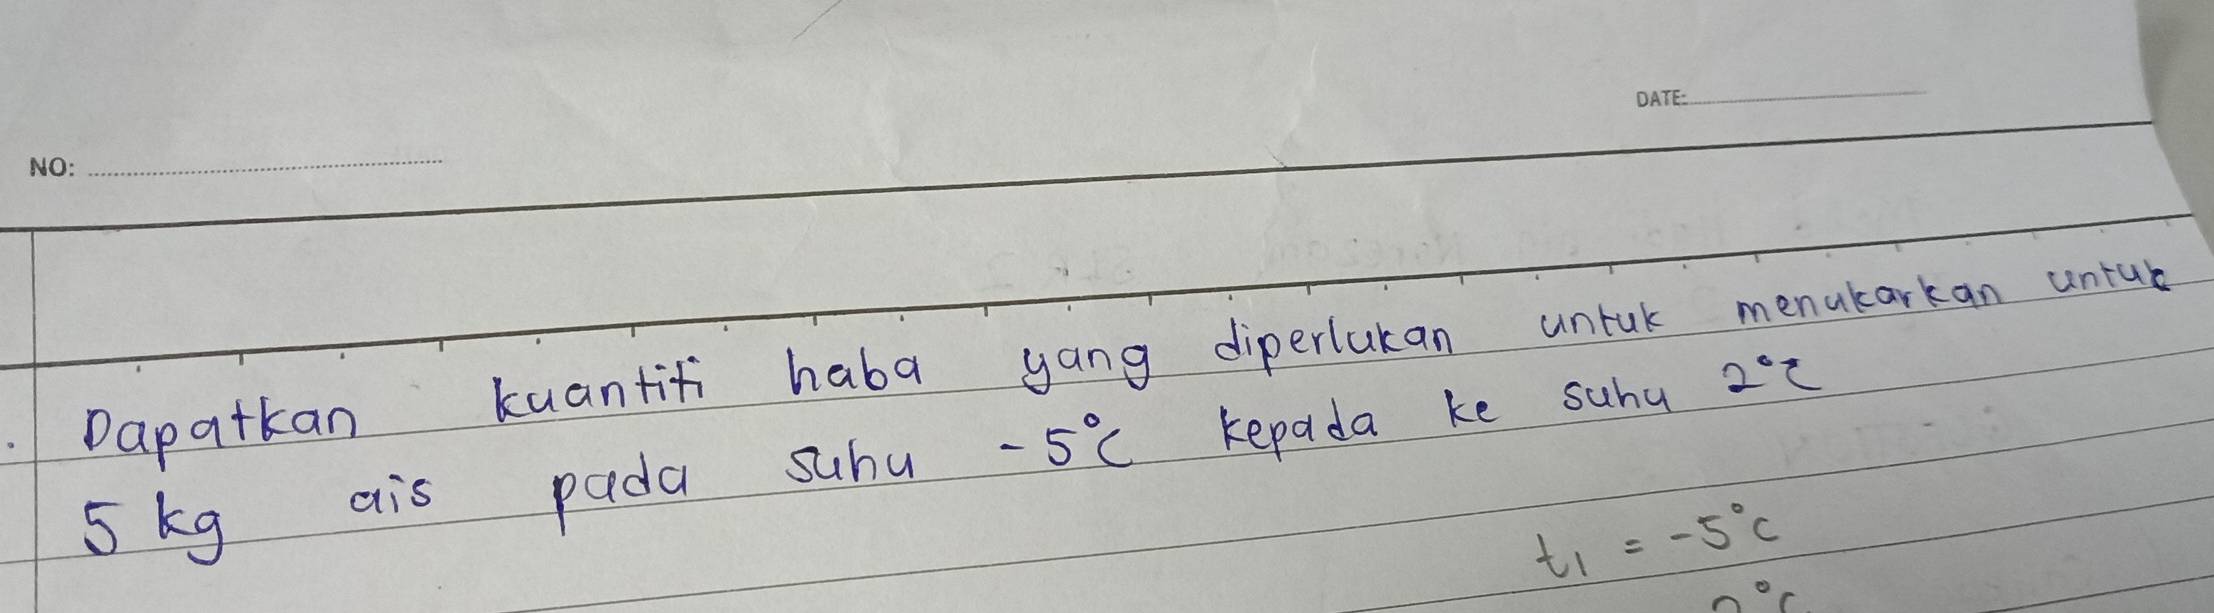 DATE:
NO:
Dapatkan kuantiti haba yang diperlukan untuk menukarkan untuk
5 kg ais pada suhu -5°C kepada ke suhu 2°C
t₁ = -5°C
2°C